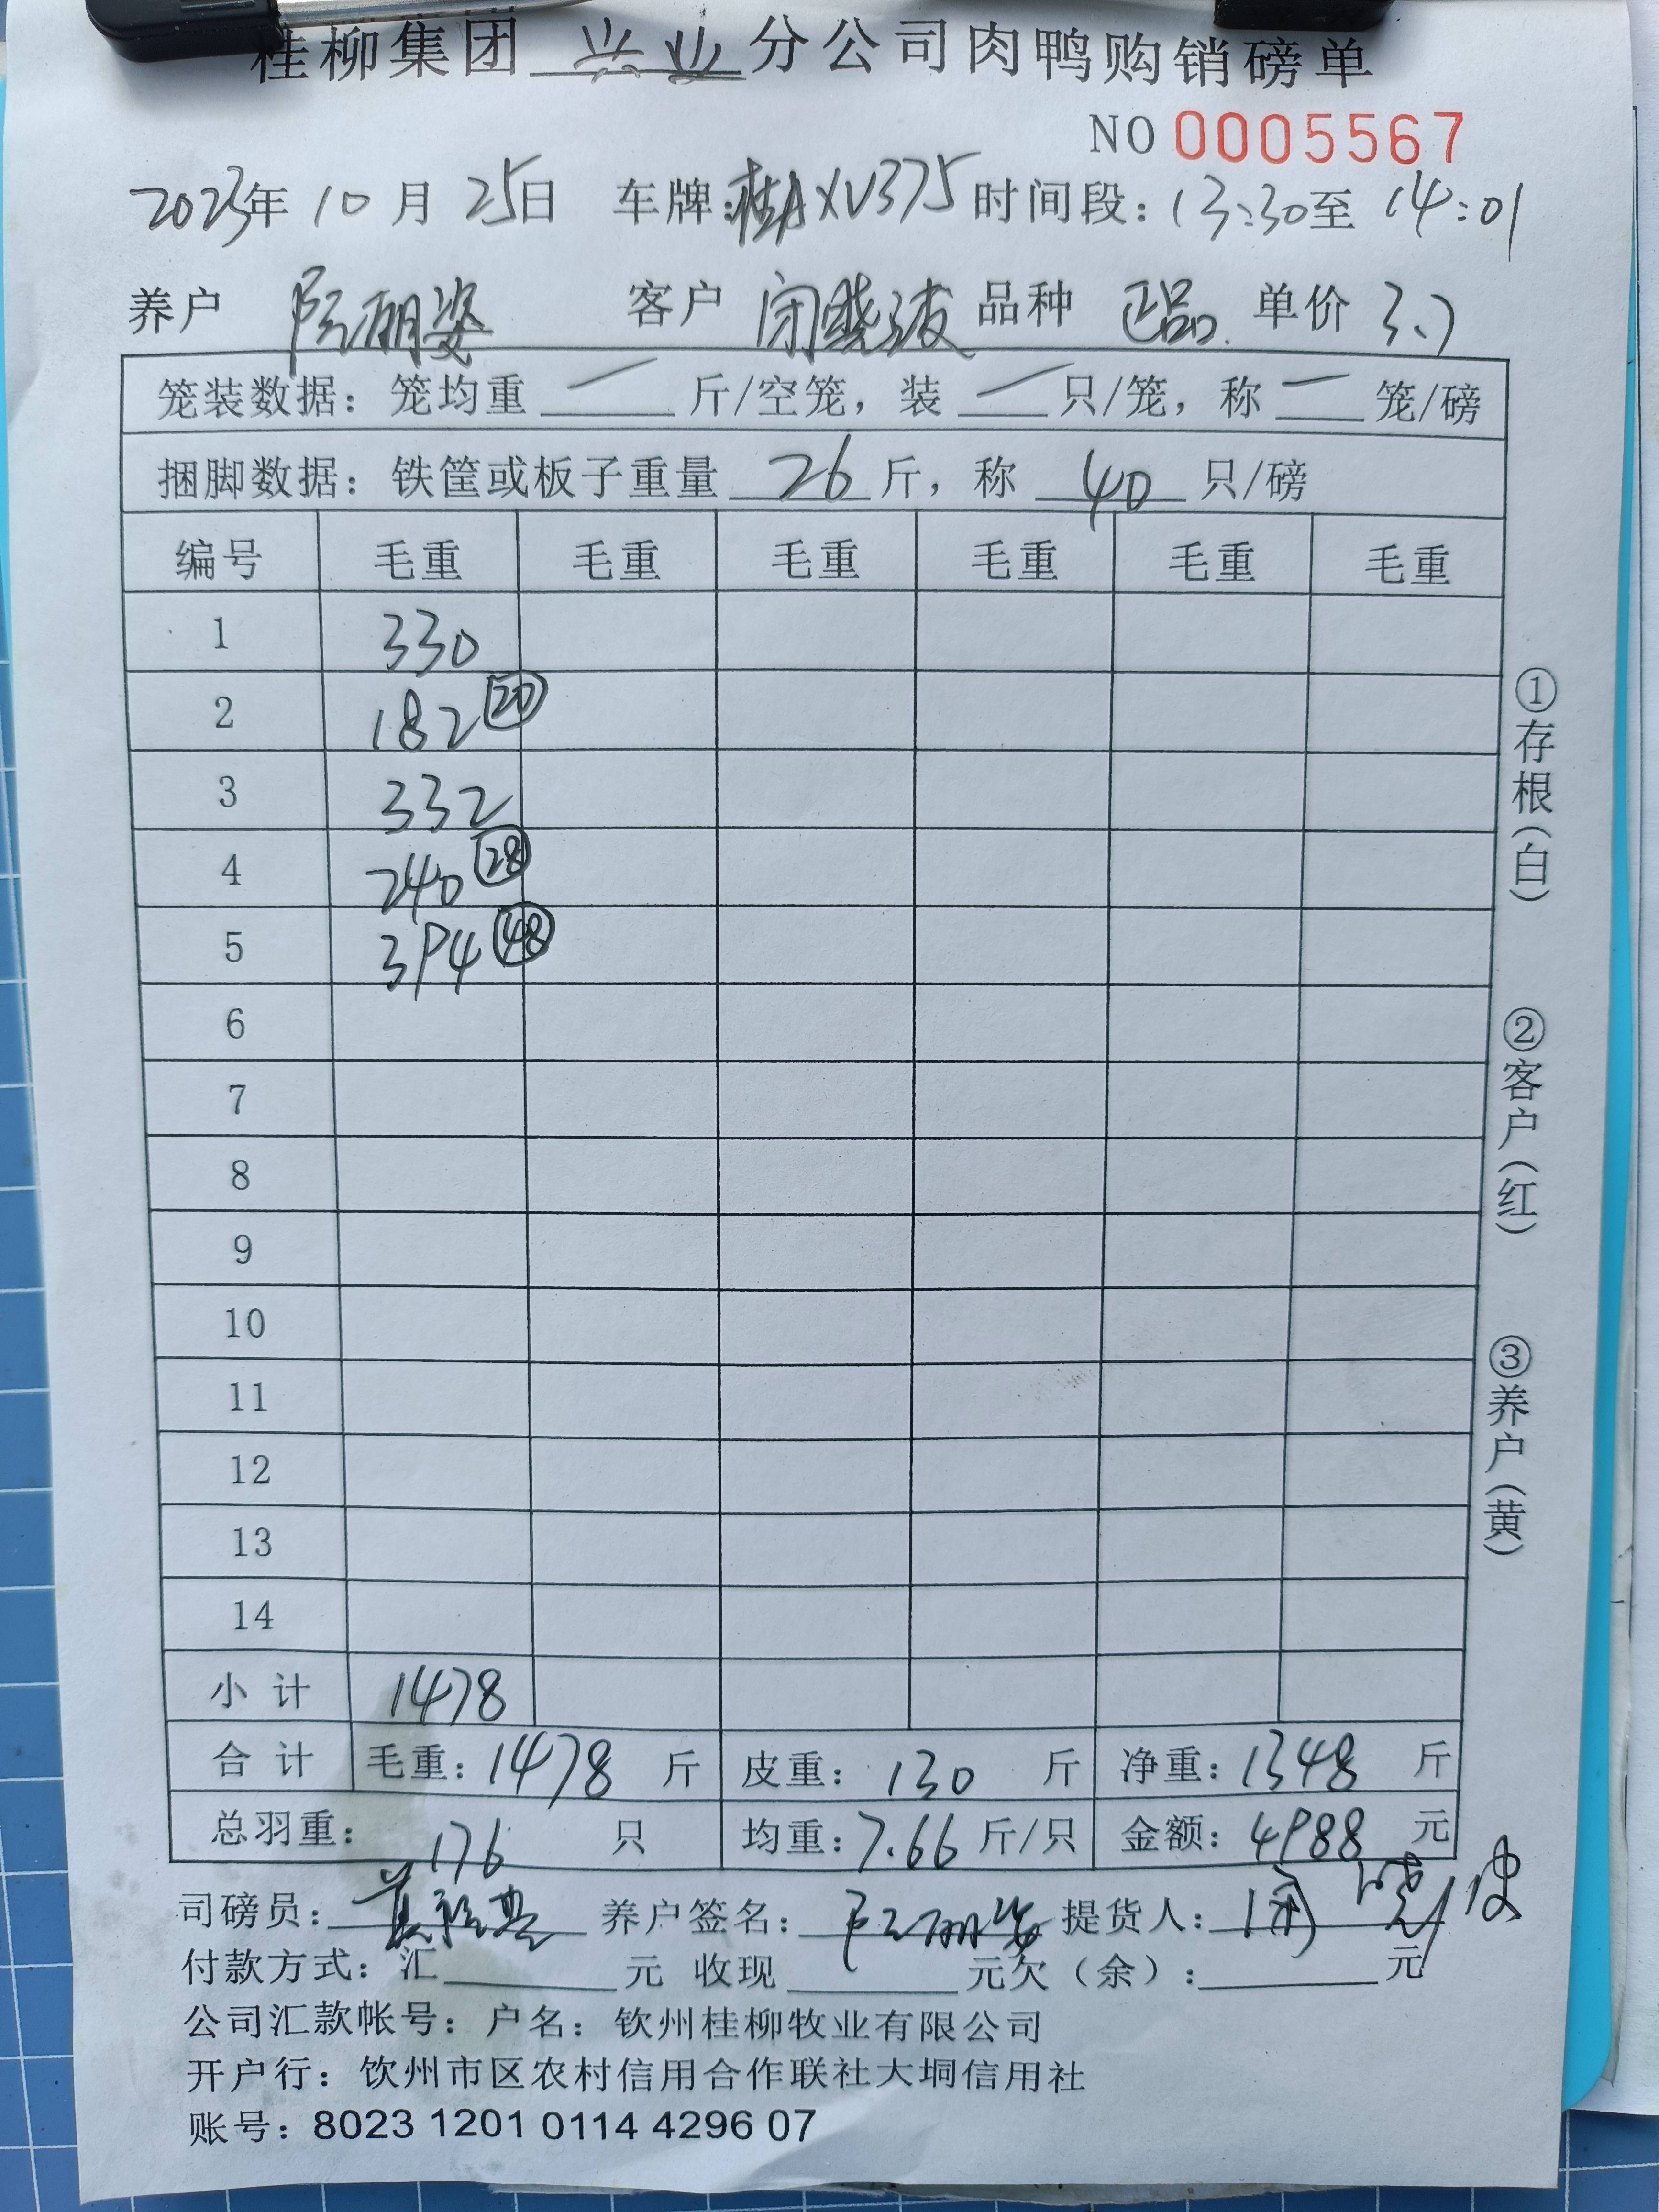 桂柳集团 兴业 分公司肉鸭购销磅单
NO 0005567
2023年 10 月 25日 车牌:桂AXV375 时间段: 13:30至 14:01
养户 阮丽姿 客户 闭晓波 品种 正品. 单价 3.7
笼装数据: 笼均重 — 斤/空笼, 装 — 只/笼, 称 — 笼/磅
捆脚数据: 铁筐或板子重量 26 斤, 称 40 只/磅
编号 毛重 毛重 毛重 毛重 毛重 毛重
1 330
2 182 ⑳
3 332
4 240 ㉘
5 394 ㊽
6
7
8
9
10
11
12
13
14
小 计 1478
合 计 毛重: 1478 斤 皮重: 130 斤 净重: 1348 斤
总羽重: 176 只 均重: 7.66 斤/只 金额: 4988 元
司磅员: 养户签名: 阮丽姿 提货人: 闭晓波
付款方式: 汇 元 收现 元欠（余）: 元
公司汇款帐号: 户名: 钦州桂柳牧业有限公司
开户行: 钦州市区农村信用合作联社大垌信用社
账号: 8023 1201 0114 4296 07
①存根(白)
②客户(红)
③养户(黄)